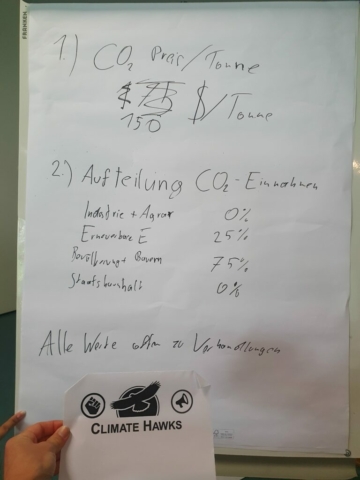 1.) CO₂ Preis/Tonne
$ 75 $/Tonne
150
2.) Aufteilung CO₂-Einnahmen
Industrie + Agrar 0%
Erneuerbare E 25%
Bevölkerung + Bauern 75%
Staatshaushalt 0%
Alle Werte offen zu Verhandlungen
CLIMATE HAWKS